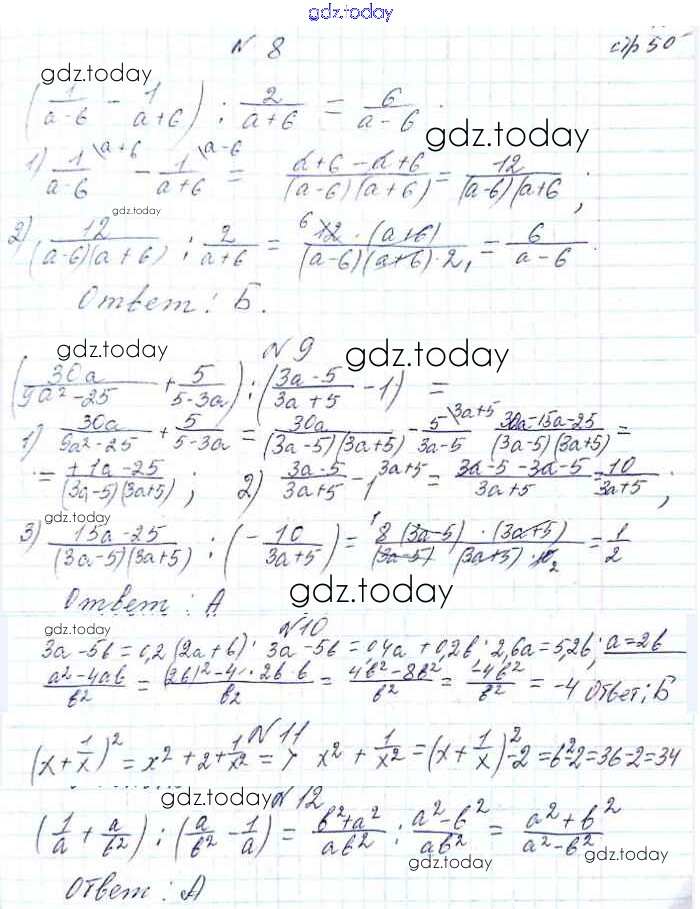 gdz.today
N 8 стр 50
gdz.today
(1/(a-6) - 1/(a+6)) : 2/(a+6) = 6/(a-6).
gdz.today
1) 1/(a-6) \a+6 - 1/(a+6) \a-6 = (a+6-a+6)/((a-6)(a+6)) = 12/((a-6)(a+6 ;
gdz.today
2) 12/((a-6)(a+6)) : 2/(a+6) = 6 12·(a+6)/((a-6)(a+6)·2, = 6/(a-6).
Ответ: Б.
gdz.today N 9 gdz.today
(30a/(9a²-25) + 5/(5-3a)) : ((3a-5)/(3a+5) - 1) =
1) 30a/(9a²-25) + 5/(5-3a) = 30a/((3a-5)(3a+5)) - 5/(3a-5) \3a+5 (30a-15a-25)/((3a-5)(3a+5)) =
= (+1a-25)/((3a-5)(3a+5)) ; 2) (3a-5)/(3a+5) - 1 3a+5 = (3a-5-3a-5)/(3a+5) = 10/(3a+5) ;
gdz.today
3) (15a-25)/((3a-5)(3a+5)) : (-10/(3a+5)) = 1 8(3a-5)·(3a+5)/((3a-5)(3a+5)·10 2 = 1/2
Ответ: А gdz.today
N 10
gdz.today
3a-5в=0,2(2a+в); 3a-5в=0,4a+0,2в; 2,6a=5,2в; a=2в
(a²-4aв)/в² = ((2в)²-4·2в·в)/в² = (4в²-8в²)/в² = -4в²/в² = -4 Ответ: Б
gdz.today N 11
(x+1/x)² = x²+2+1/x² => x²+1/x² = (x+1/x)²-2=6²-2=36-2=34
gdz.today N 12
(1/a + a/в²) : (a/в² - 1/a) = (в²+a²)/(aв²) : (a²-в²)/(aв²) = (a²+в²)/(a²-в²)
gdz.today gdz.today
Ответ: А